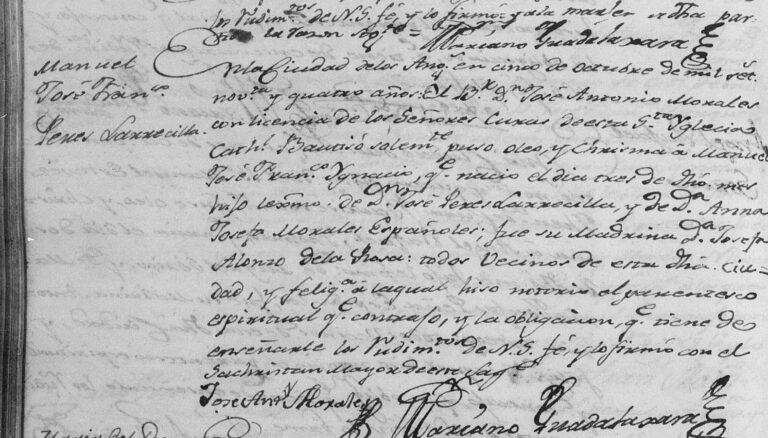 Rudim.tos de N.S. fé, y lo firmó
Mariano Guadalaxara
Manuel
José Fran.co
Peres Larrecilla.
En la Ciudad de los Ang.s en cinco de octubre de mil set.
nov.ta y quatro años: El B.r D.n José Antonio Morales
con licencia de los Señores Curas de esta S.ta Yglecia
Cath.l Bautisó solem.te puso oleo, y Chrisma à Manuel
José Fran.co Ygnacio, q.e nacio el dia tres de dho. mes
hijo lexmo. de D.n José Peres Larrecilla, y de D.a Anna
Josefa Morales Españoles: fue su Madrina D.a Josefa
Alonzo de la Rosa: todos Vecinos de esta dha. Ciu=
dad, y felig.s à la qual hiso notorio el parentesco
espiritual q.e contrajo, y la obligacion, q.e tiene de
enseñarle los Rudim.tos de N.S. fé, y lo firmó con el
Sachristan Mayor de este Sag.o
José Ant.o Morales
Mariano Guadalaxara